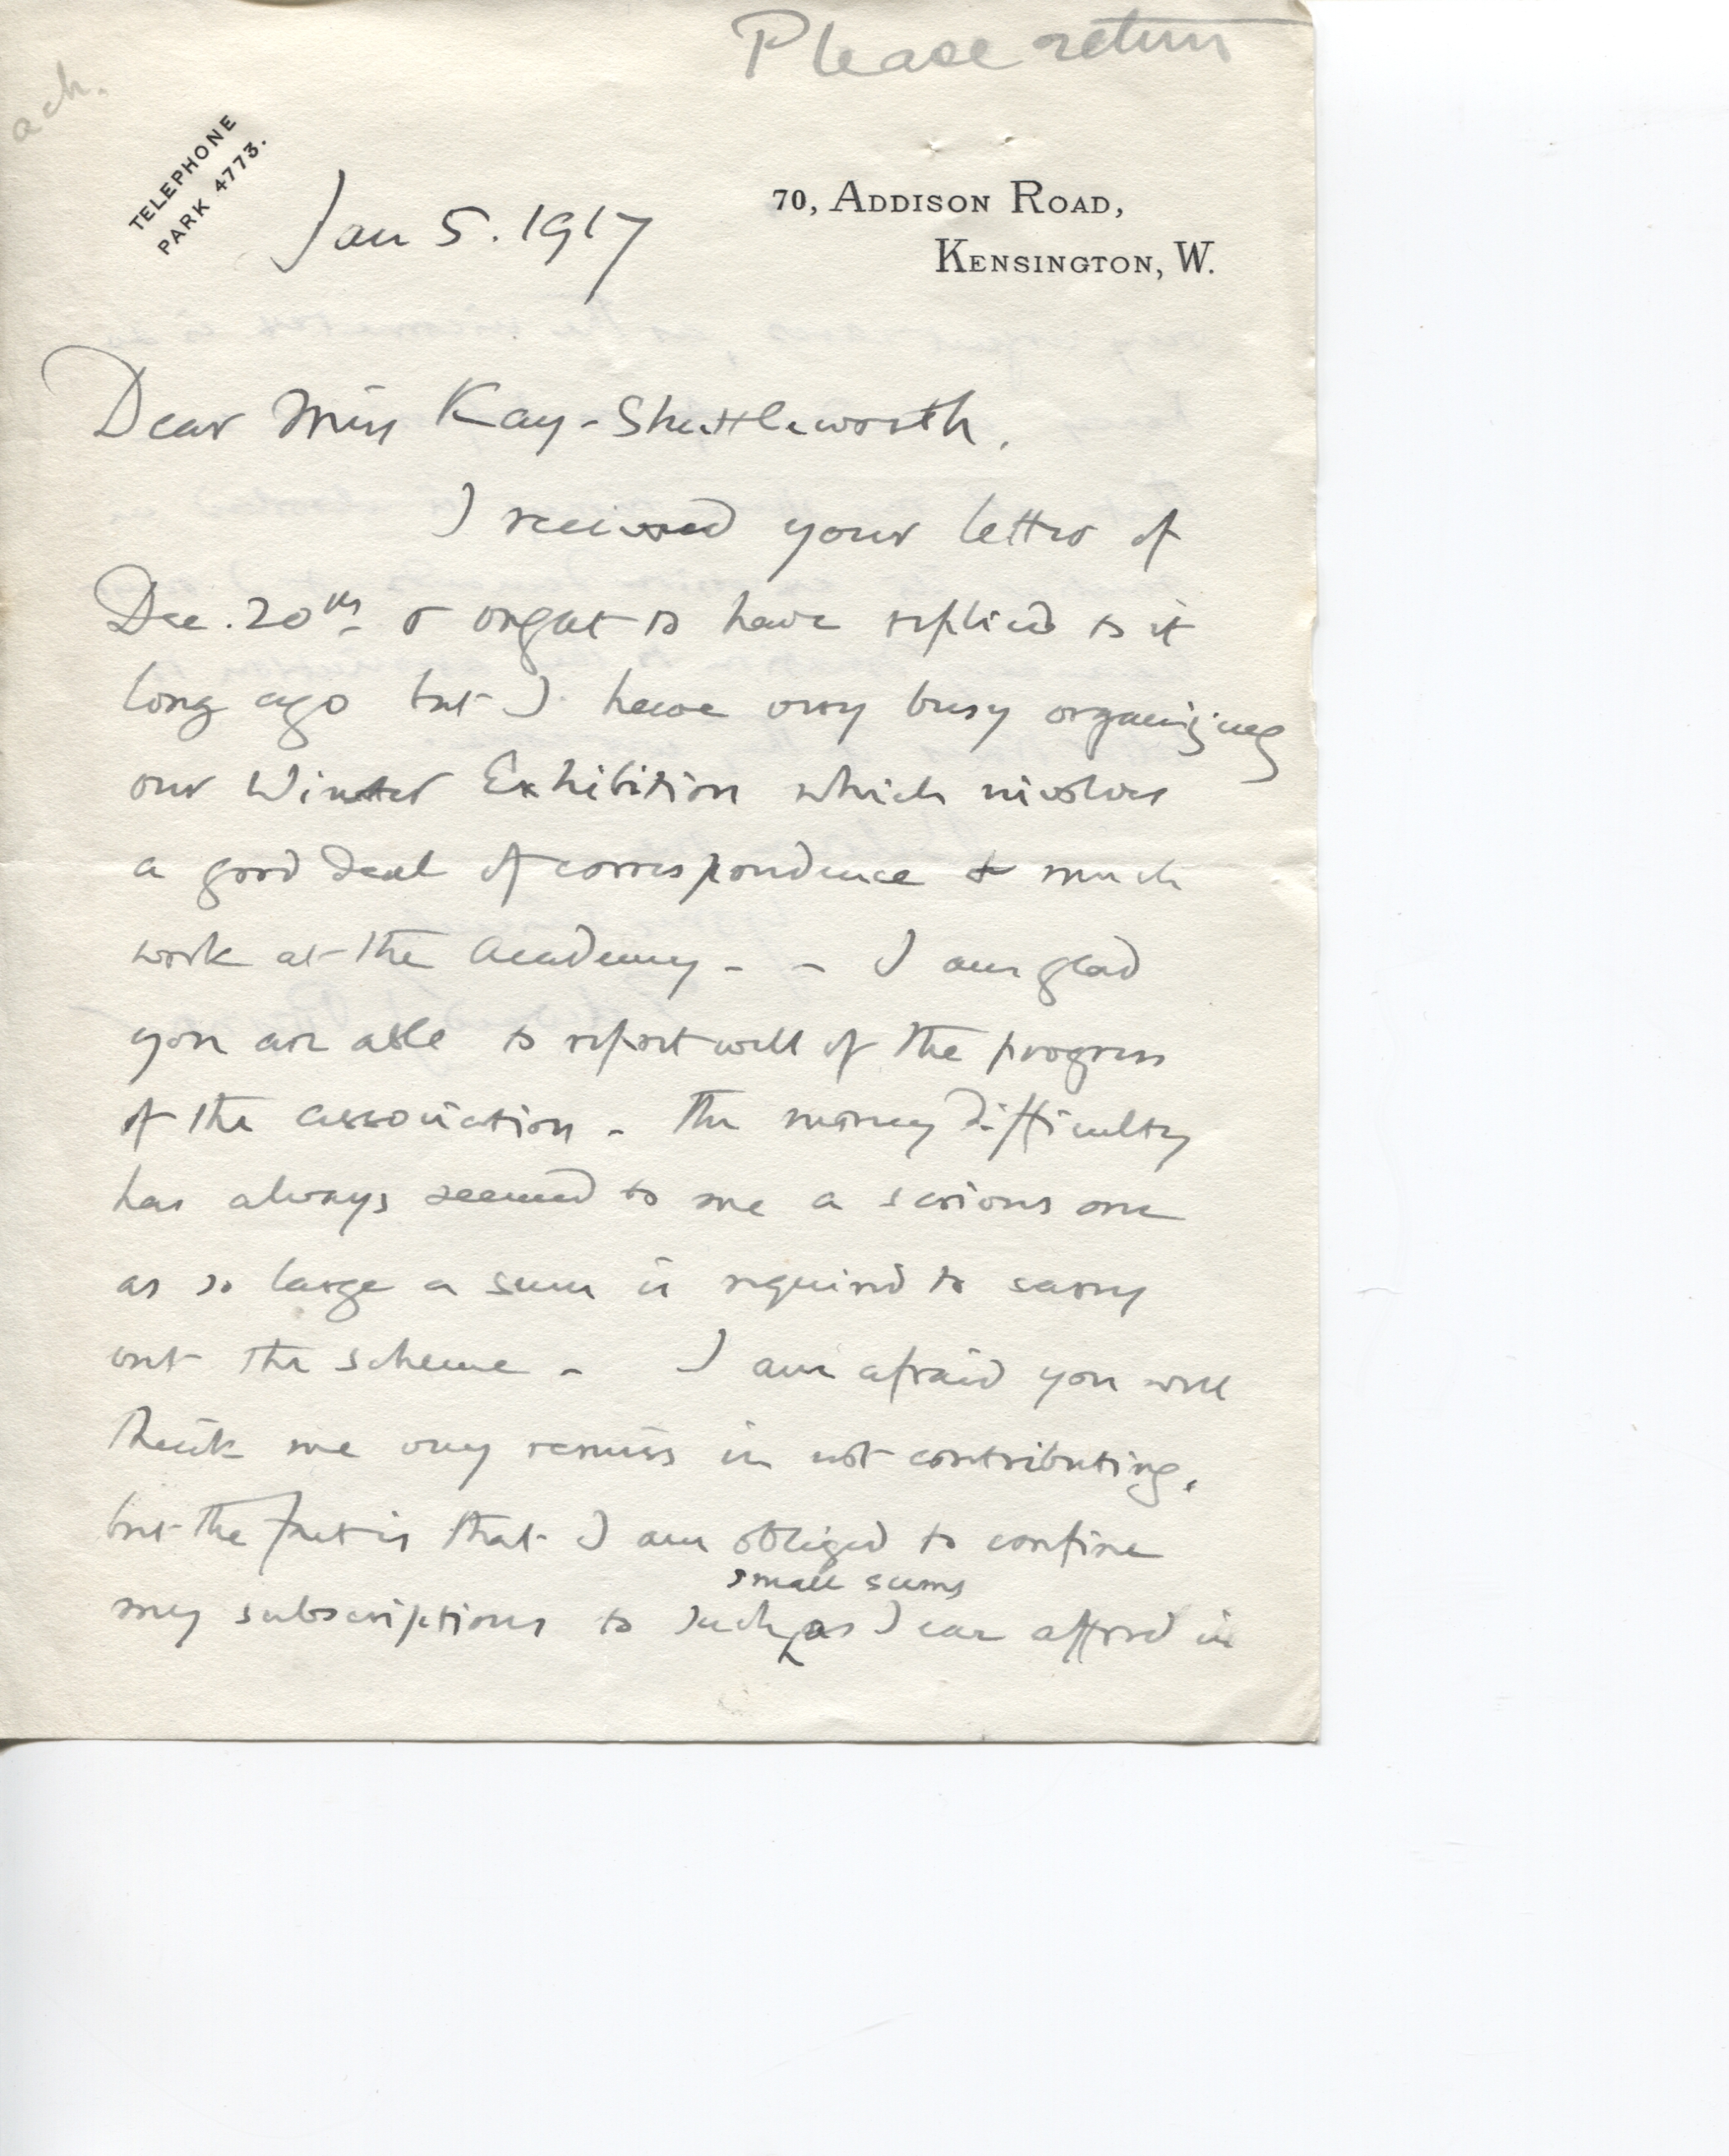 Please return
ack.
TELEPHONE
PARK 4773.
70, ADDISON ROAD,
KENSINGTON, W.
Jan 5. 1917
Dear Miss Kay-Shuttleworth,
I received your letter of
Dec. 20th & ought to have replied to it
long ago but I have very busy organizing
our Winter Exhibition which involves
a good deal of correspondence & much
work at the Academy - - I am glad
you are able to report well of the progress
of the association - The money difficulty
has always seemed to me a serious one
as so large a sum is required to carry
out the scheme - I am afraid you will
think me very remiss in not contributing,
but the fact is that I am obliged to confine
small sums
my subscriptions to such as I can afford in